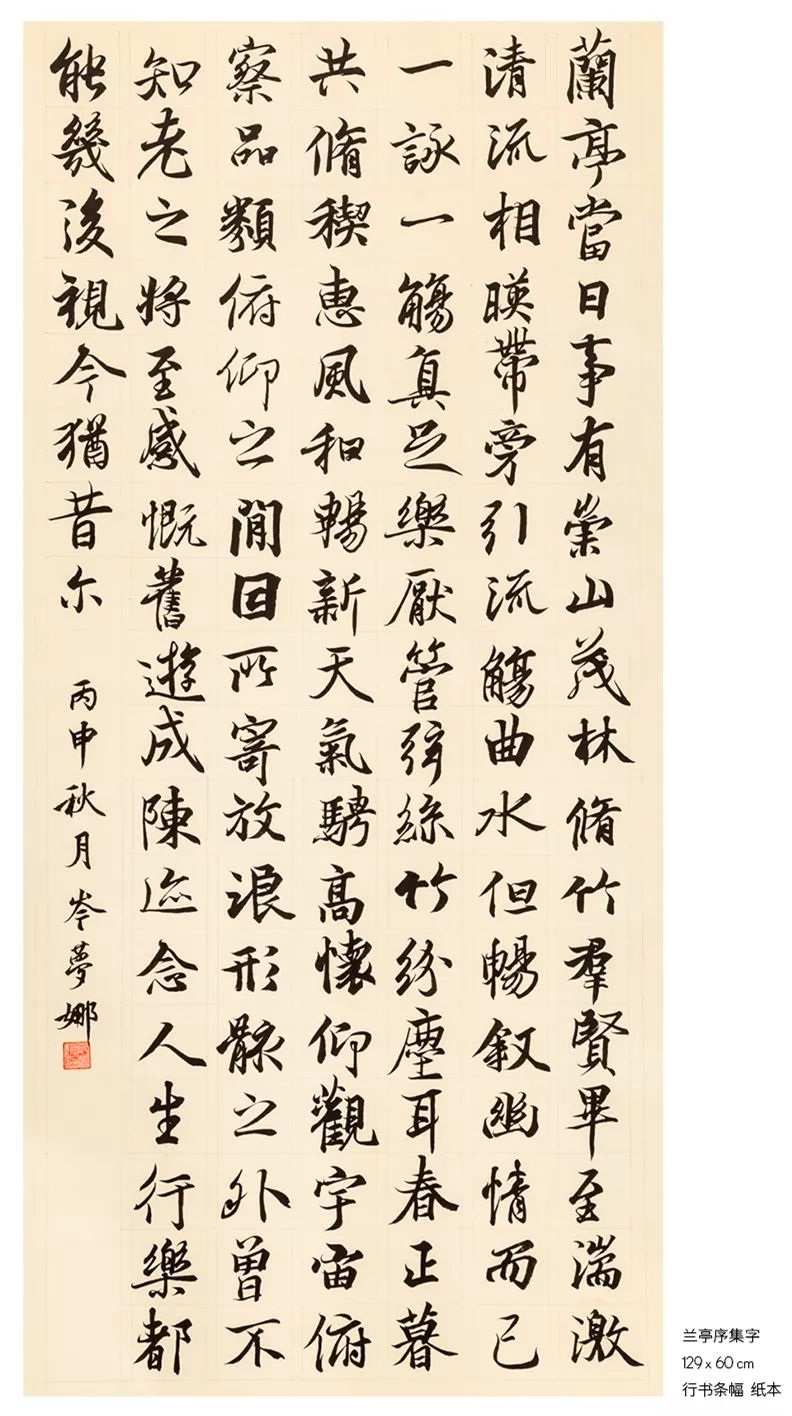 蘭亭當日事有崇山茂林脩竹羣賢畢至湍激
清流相暎帶旁引流觴曲水但暢叙幽情而已
一詠一觴真足樂厭管弦絲竹紛塵耳春正暮
共脩稧惠風和暢新天氣騁高懷仰觀宇宙俯
察品類俯仰之間因所寄放浪形骸之外曾不
知老之將至感慨舊遊成陳迹念人生行樂都
能幾後視今猶昔尔
丙申秋月岑夢娜
兰亭序集字
129 x 60 cm
行书条幅 纸本